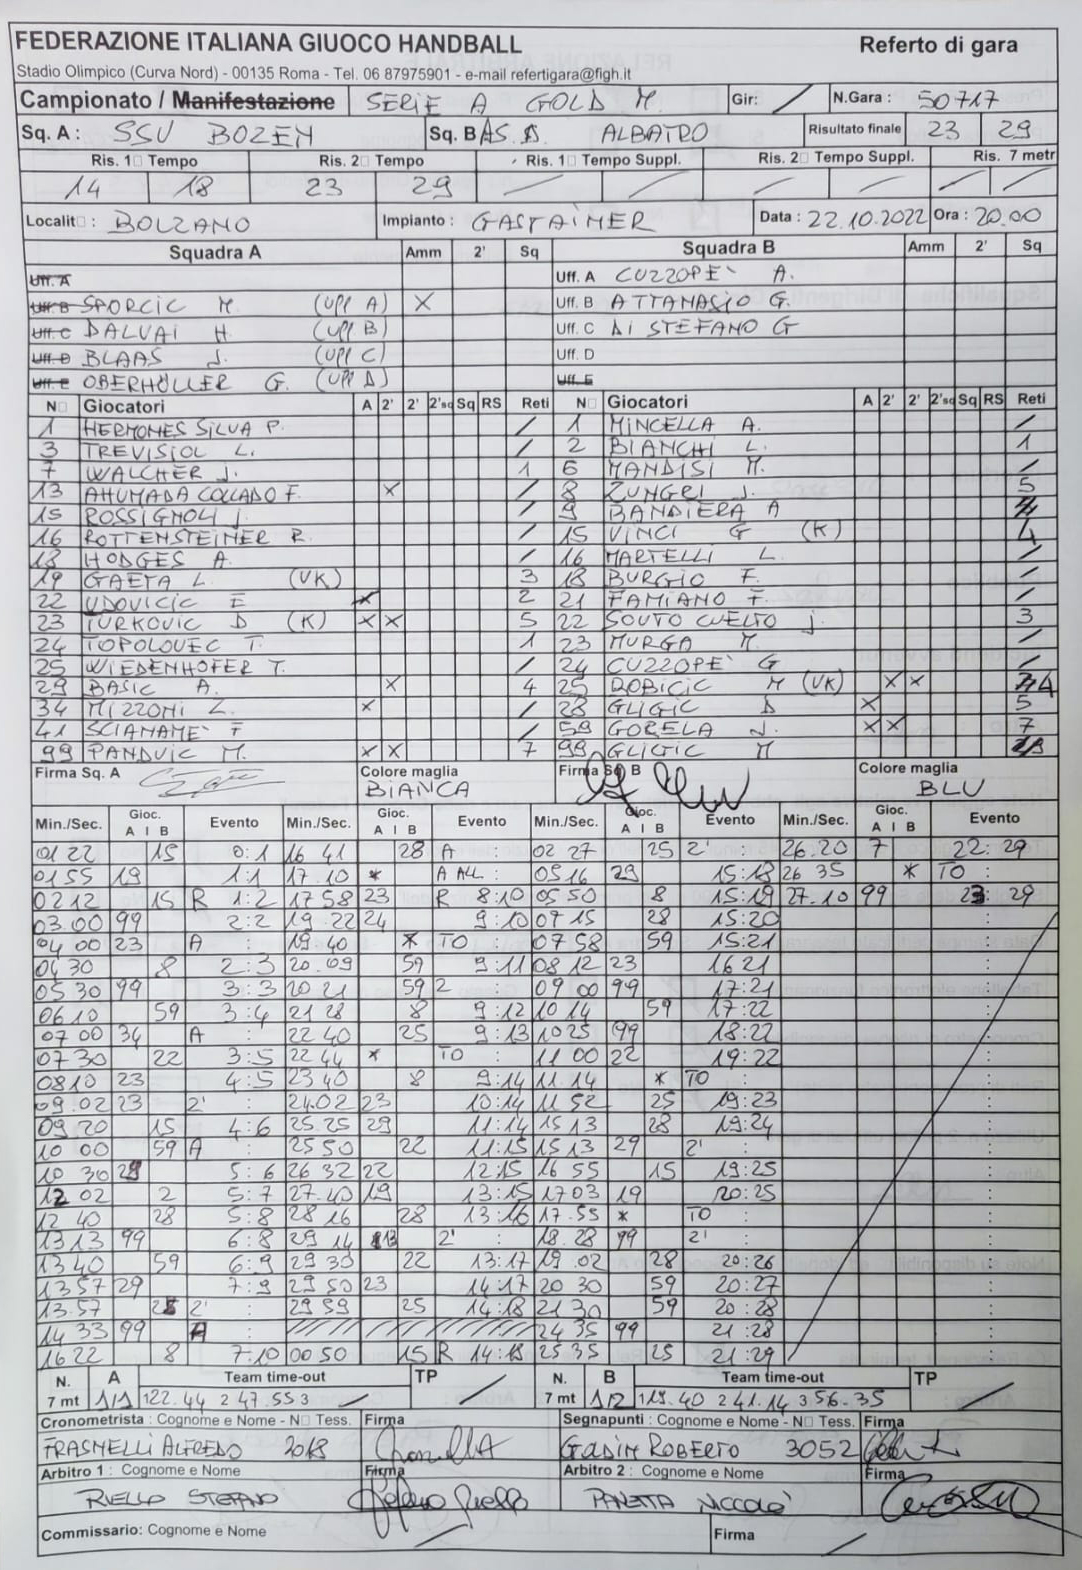 FEDERAZIONE ITALIANA GIUOCO HANDBALL Referto di gara
Stadio Olimpico (Curva Nord) - 00135 Roma - Tel. 06 87975901 - e-mail refertigara@figh.it
Campionato / Manifestazione SERIE A GOLD M Gir: / N.Gara : 50717
Sq. A : SSV BOZEN Sq. B A.S.D. ALBATRO Risultato finale 23 29
Ris. 1□ Tempo Ris. 2□ Tempo Ris. 1□ Tempo Suppl. Ris. 2□ Tempo Suppl. Ris. 7 metr
14 18 23 29 / / / / / /
Localit□ : BOLZANO Impianto : GASTAINER Data : 22.10.2022 Ora : 20.00
Squadra A Amm 2' Sq Squadra B Amm 2' Sq
Uff. A Uff. A CUZZOPE' A.
Uff. B SPORCIC M. (Uff A) X Uff. B ATTANASIO G.
Uff. C DALVAI H. (Uff B) Uff. C DI STEFANO G
Uff. D BLAAS J. (Uff C) Uff. D
Uff. E OBERHÖLLER G. (Uff D) Uff. E
N□ Giocatori A 2' 2' 2'sq Sq RS Reti N□ Giocatori A 2' 2' 2'sq Sq RS Reti
1 HERMONES SILVA P. / 1 MINCELLA A. /
3 TREVISIOL L. / 2 BIANCHI L. 1
7 WALCHER J. 1 6 MANDISI M. /
13 AHUMADA COLLADO F. X / 8 ZUNGRI J. 5
15 ROSSIGNOLI J. / 9 BANDIERA A
16 ROTTENSTEINER R. / 15 VINCI G (K) 4
18 HODGES A. / 16 MARTELLI L. /
19 GAETA L. (VK) 3 18 BURGIO F. /
22 UDOVICIC E X 2 21 FAMIANO F. /
23 TURKOVIC D (K) X X 5 22 SOUTO CUELTO J. 3
24 TOPOLOVEC T. 1 23 MURGA M. /
25 WIEDENHOFER T. / 24 CUZZOPE' G /
29 BASIC A. X 4 25 BOBICIC M (VK) X X 4
34 MIZZONI L. X / 28 GLIGIC D X 5
41 SCIAMAME' F / 59 GORELA J. X X 7
99 PANDUIC M. X X 7 99 GLIGIC M
Firma Sq. A Colore maglia BIANCA Firma Sq B Colore maglia BLU
Min./Sec. Gioc. A I B Evento Min./Sec. Gioc. A I B Evento Min./Sec. Gioc. A I B Evento Min./Sec. Gioc. A I B Evento
01 22 15 0:1 16 41 28 A 02 27 25 2' 26.20 7 22:29
01 55 19 1:1 17.10 * A ALL 05 16 29 15:18 26 35 * TO
02 12 15 R 1:2 17 58 23 R 8:10 05 50 8 15:19 27.10 99 23:29
03.00 99 2:2 19.22 24 9:10 07 15 28 15:20
04 00 23 A 19.40 * TO 07 58 59 15:21
04 30 8 2:3 20.09 59 9:11 08 12 23 16 21
05 30 99 3:3 20 21 59 2 09 00 99 17:21
06 10 59 3:4 21 28 8 9:12 10 14 59 17:22
07 00 34 A 22 40 25 9:13 10 25 99 18:22
07 30 22 3:5 22 44 * TO 11 00 22 19:22
08 10 23 4:5 23 40 8 9:14 11.14 * TO
09.02 23 2' 24.02 23 10:14 11 52 25 19:23
09 20 15 4:6 25.25 29 11:14 15 13 28 19:24
10 00 59 A 25 50 22 11:15 15 13 29 2'
10 30 29 5:6 26 32 22 12:15 16 55 15 19:25
12 02 2 5:7 27.40 19 13:15 17 03 19 20:25
12 40 28 5:8 28 16 28 13:16 17.55 * TO
13 13 99 6:8 29 14 13 2' 18.28 99 2'
13 40 59 6:9 29 30 22 13:17 19.02 28 20:26
13 57 29 7:9 29 50 23 14:17 20 30 59 20:27
13.57 25 2' 29 59 25 14:18 21 30 59 20:28
14 33 99 A 24 35 99 21:28
16 22 8 7:10 00 50 15 R 14:18 25 35 25 21:29
N. 7 mt A 1/1 Team time-out 1 22.44 2 47.55 3 / TP / N. 7 mt B 1/2 Team time-out 1 19.40 2 41.14 3 56.35 TP /
Cronometrista : Cognome e Nome - N□ Tess. Firma Segnapunti : Cognome e Nome - N□ Tess. Firma
FRASNELLI ALFREDO 2018 GADIM ROBERTO 3052
Arbitro 1 : Cognome e Nome Firma Arbitro 2 : Cognome e Nome Firma
RIELLO STEFANO PANETTA NICCOLO'
Commissario: Cognome e Nome / Firma /